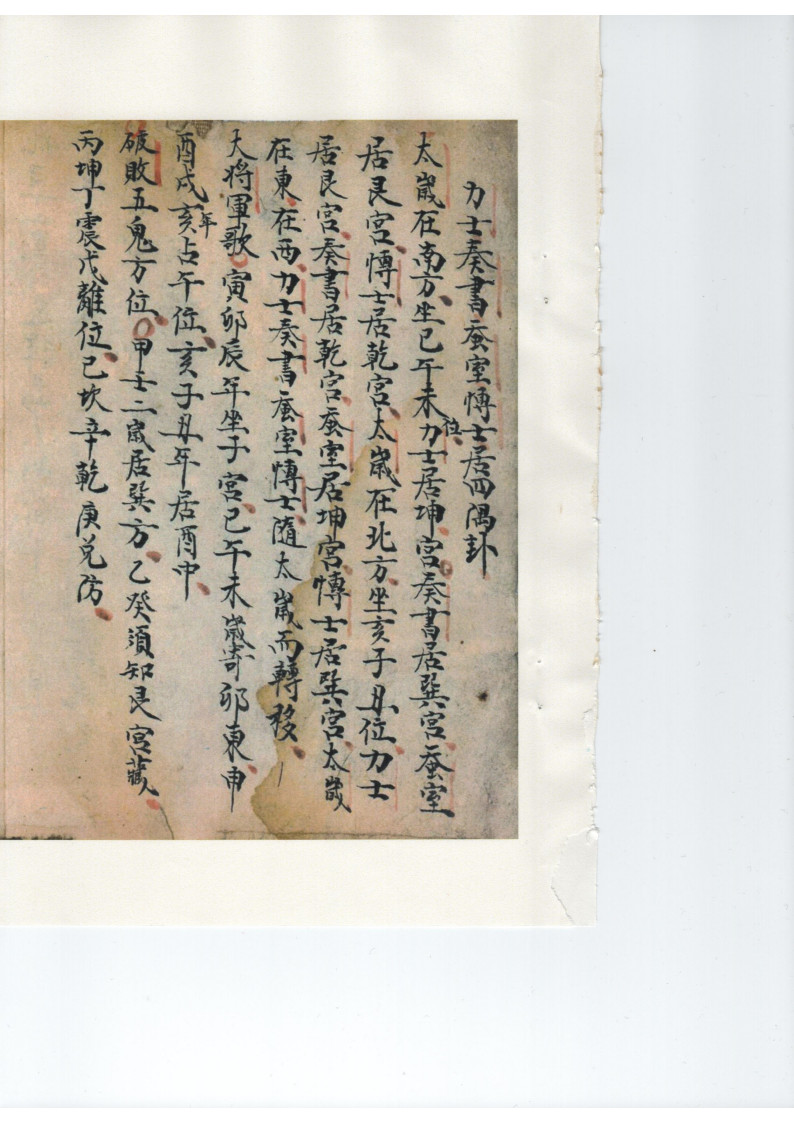 力士奏書蚕室愽士居四隅卦
太歳在南方坐巳午未位力士居坤宫奏書居巽宫蚕室
居艮宫愽士居乾宫太歳在北方坐亥子丑位力士
居艮宫奏書居乾宫蚕室居坤宫愽士居巽宫太歳
在東在西力士奏書蚕室愽士隨太歳而轉移
大将軍歌寅卯辰年坐子宫巳午未歳寄卯東申
酉戌亥年占午位亥子丑年居酉中
破敗五鬼方位甲壬二歳居巽方乙癸須知艮宫藏
丙坤丁震戊離位己坎辛乾庚兌防